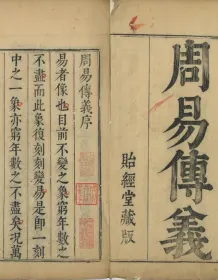 周易傳義
貽經堂藏版
周易傳義序
易者像也目前不變之象窮年數之
不盡而此象復刻刻變易是即一刻
中之一象亦窮年數之不盡矣況萬